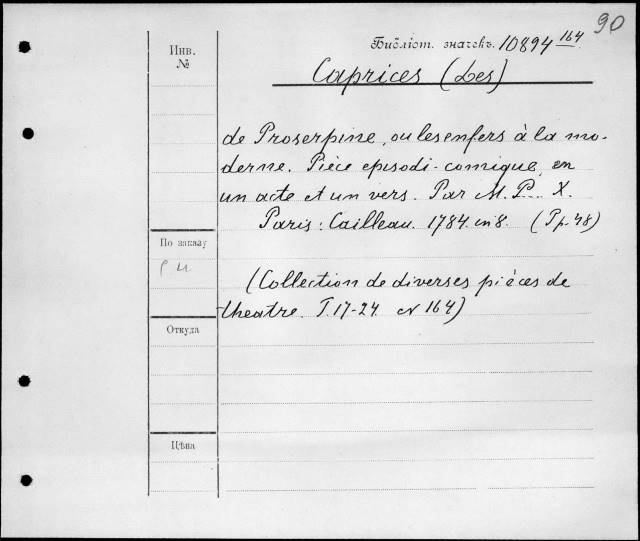 90
Инв.
№
Библіот. значекъ. 10894 164
Caprices (Les)
de Proserpine, ou les enfers à la mo-
derne. Pièce episodi-comique, en
un acte et un vers. Par M. P... X.
Paris: Cailleau. 1784. in 8. (Pp. 48)
По заказу
(Collection de diverses pièces de
theatre. T. 17-24. № 164)
Откуда
Цѣна